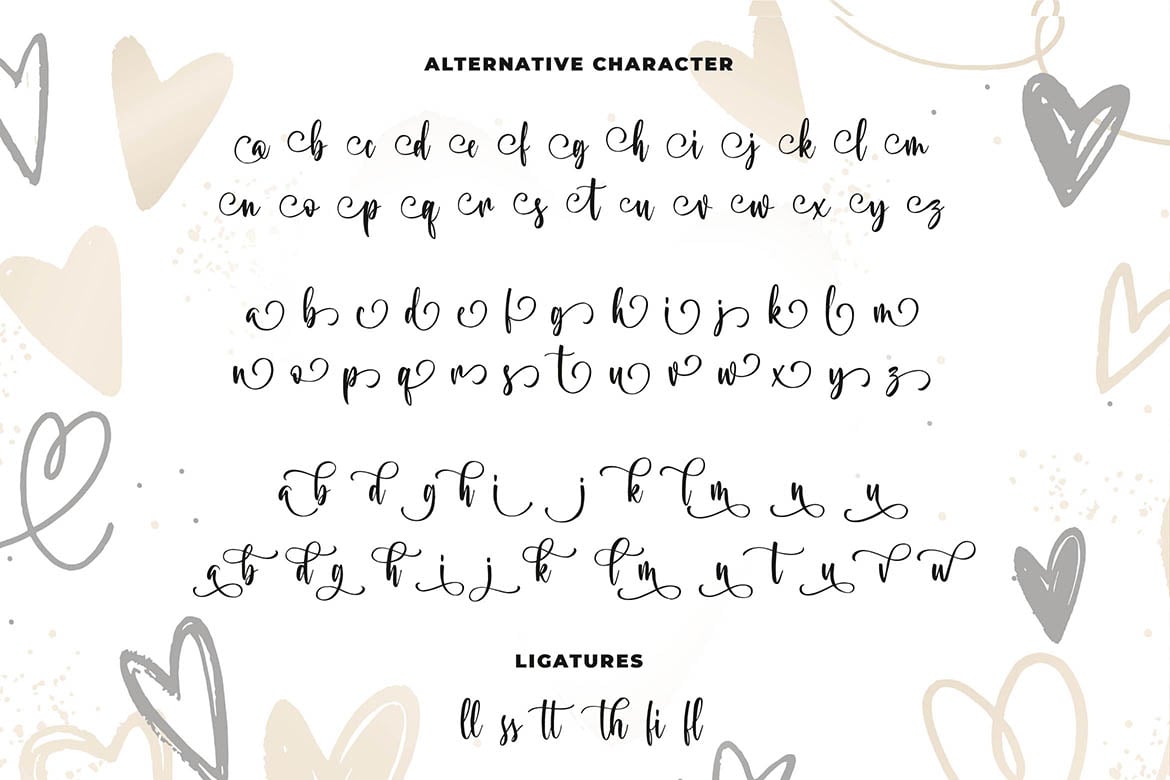 ALTERNATIVE CHARACTER
a b c d e f g h i j k l m
n o p q r s t u v w x y z
a b c d e f g h i j k l m
n o p q r s t u v w x y z
a b d g h i j k l m n u
a b d g h i j k l m n t u v w
LIGATURES
ll ss tt th fi fl